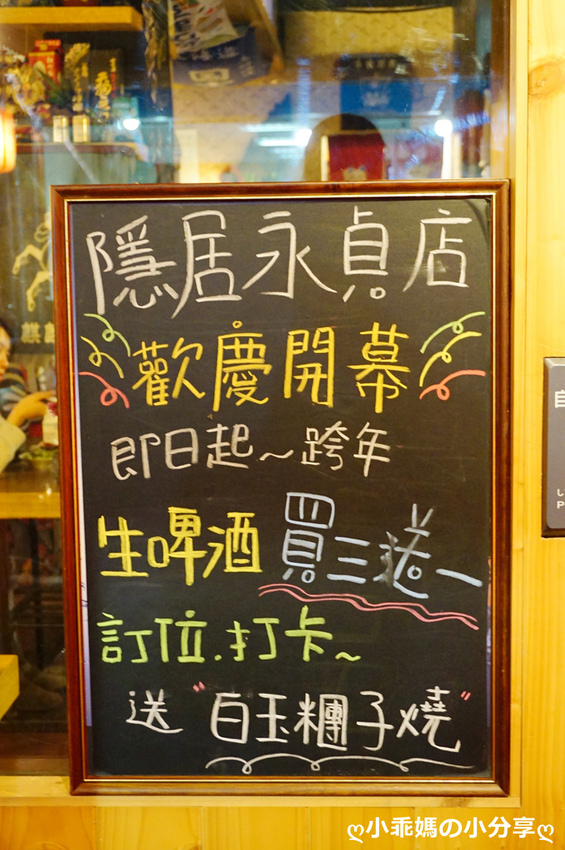 隱居永貞店
歡慶開幕
即日起～跨年
生啤酒買三送一
訂位.打卡～
送"白玉糰子燒"
ღ小乖媽の小分享ღ